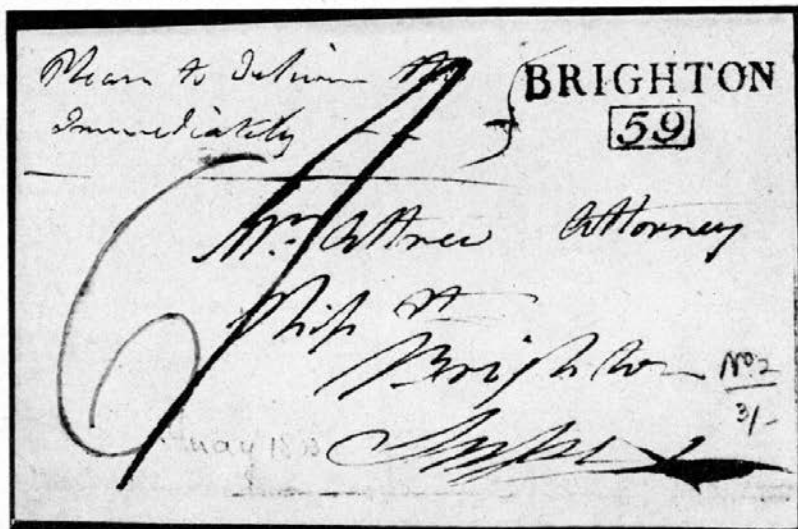 Please to Deliver this
Immediately
BRIGHTON
59
Mr. Attree Attorney
Ship St
Brighton
Sussex
No. 2
3/-